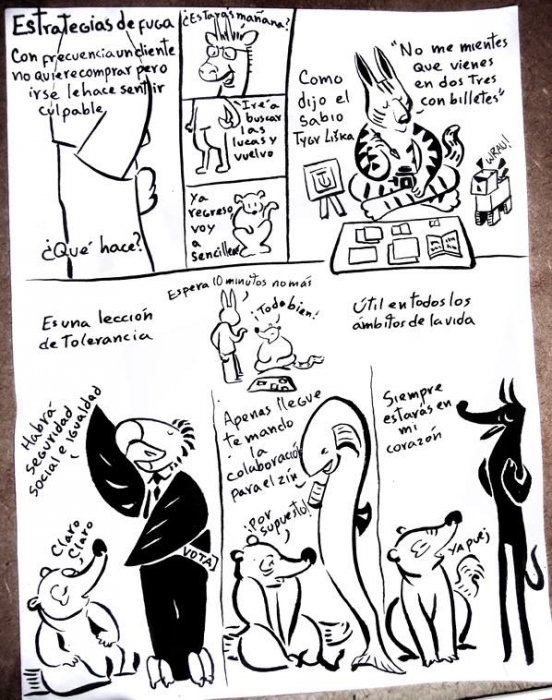 Estrategias de fuga
Con frecuencia un cliente
no quiere comprar pero
irse le hace sentir
culpable
¿Qué hace?
¿Estarás mañana?
Iré a
buscar
las
lucas y
vuelvo
Ya
regreso
voy
a
sencillear
Como
dijo el
sabio
Tygr Liska
"No me mientes
que vienes
en dos tres
con billetes"
WRAU!
Es una lección
de tolerancia
Espera 10 minutos no más
¡Todo bien!
Útil en todos los
ámbitos de la vida
Habrá
seguridad
social e igualdad
Claro
Claro
VOTA
Apenas llegue
te mando
la
colaboración
para el zin
¡Por
supuesto!
Siempre
estarás en
mi
corazón
YA PUEJ